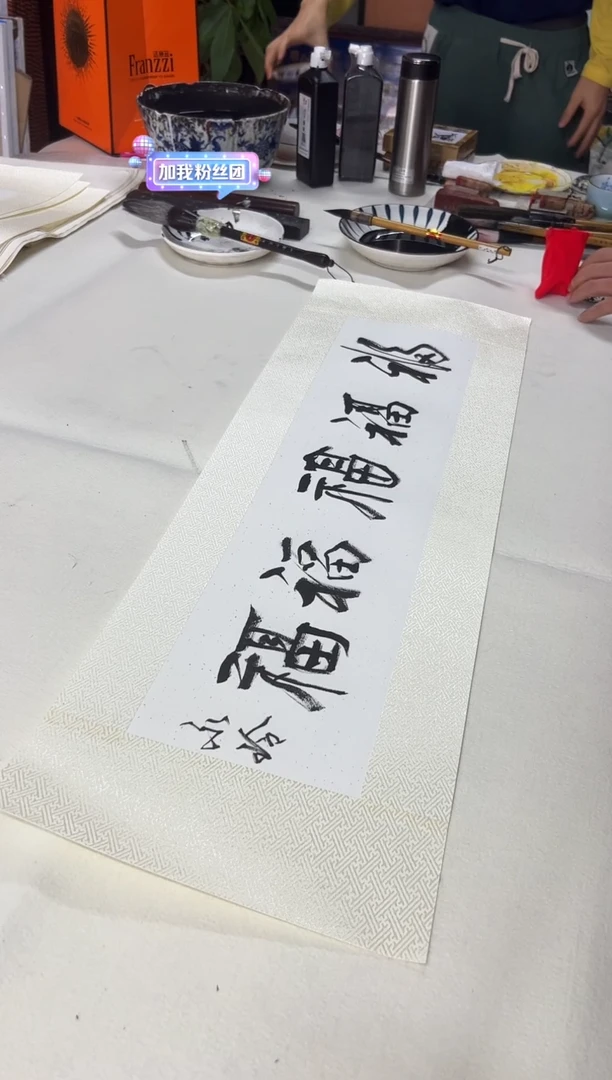 Franzzi
加我粉丝团
福福福福福